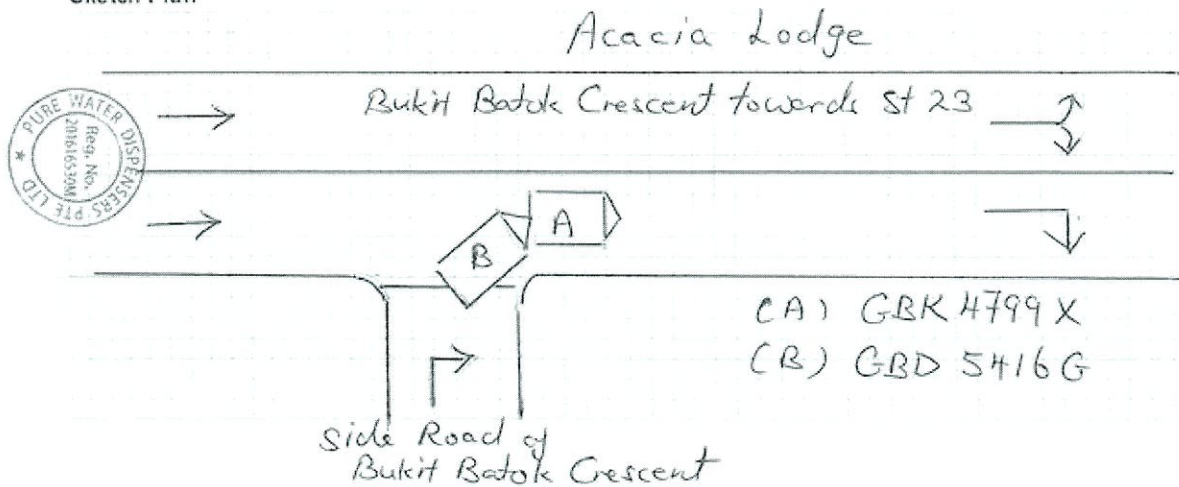 Sketch Plan
Acacia Lodge
Bukit Batok Crescent towards St 23
PURE WATER DISPENSERS PTE LTD
Reg. No.
A
B
(A) GBK 4799 X
(B) GBD 5416 G
Side Road of
Bukit Batok Crescent